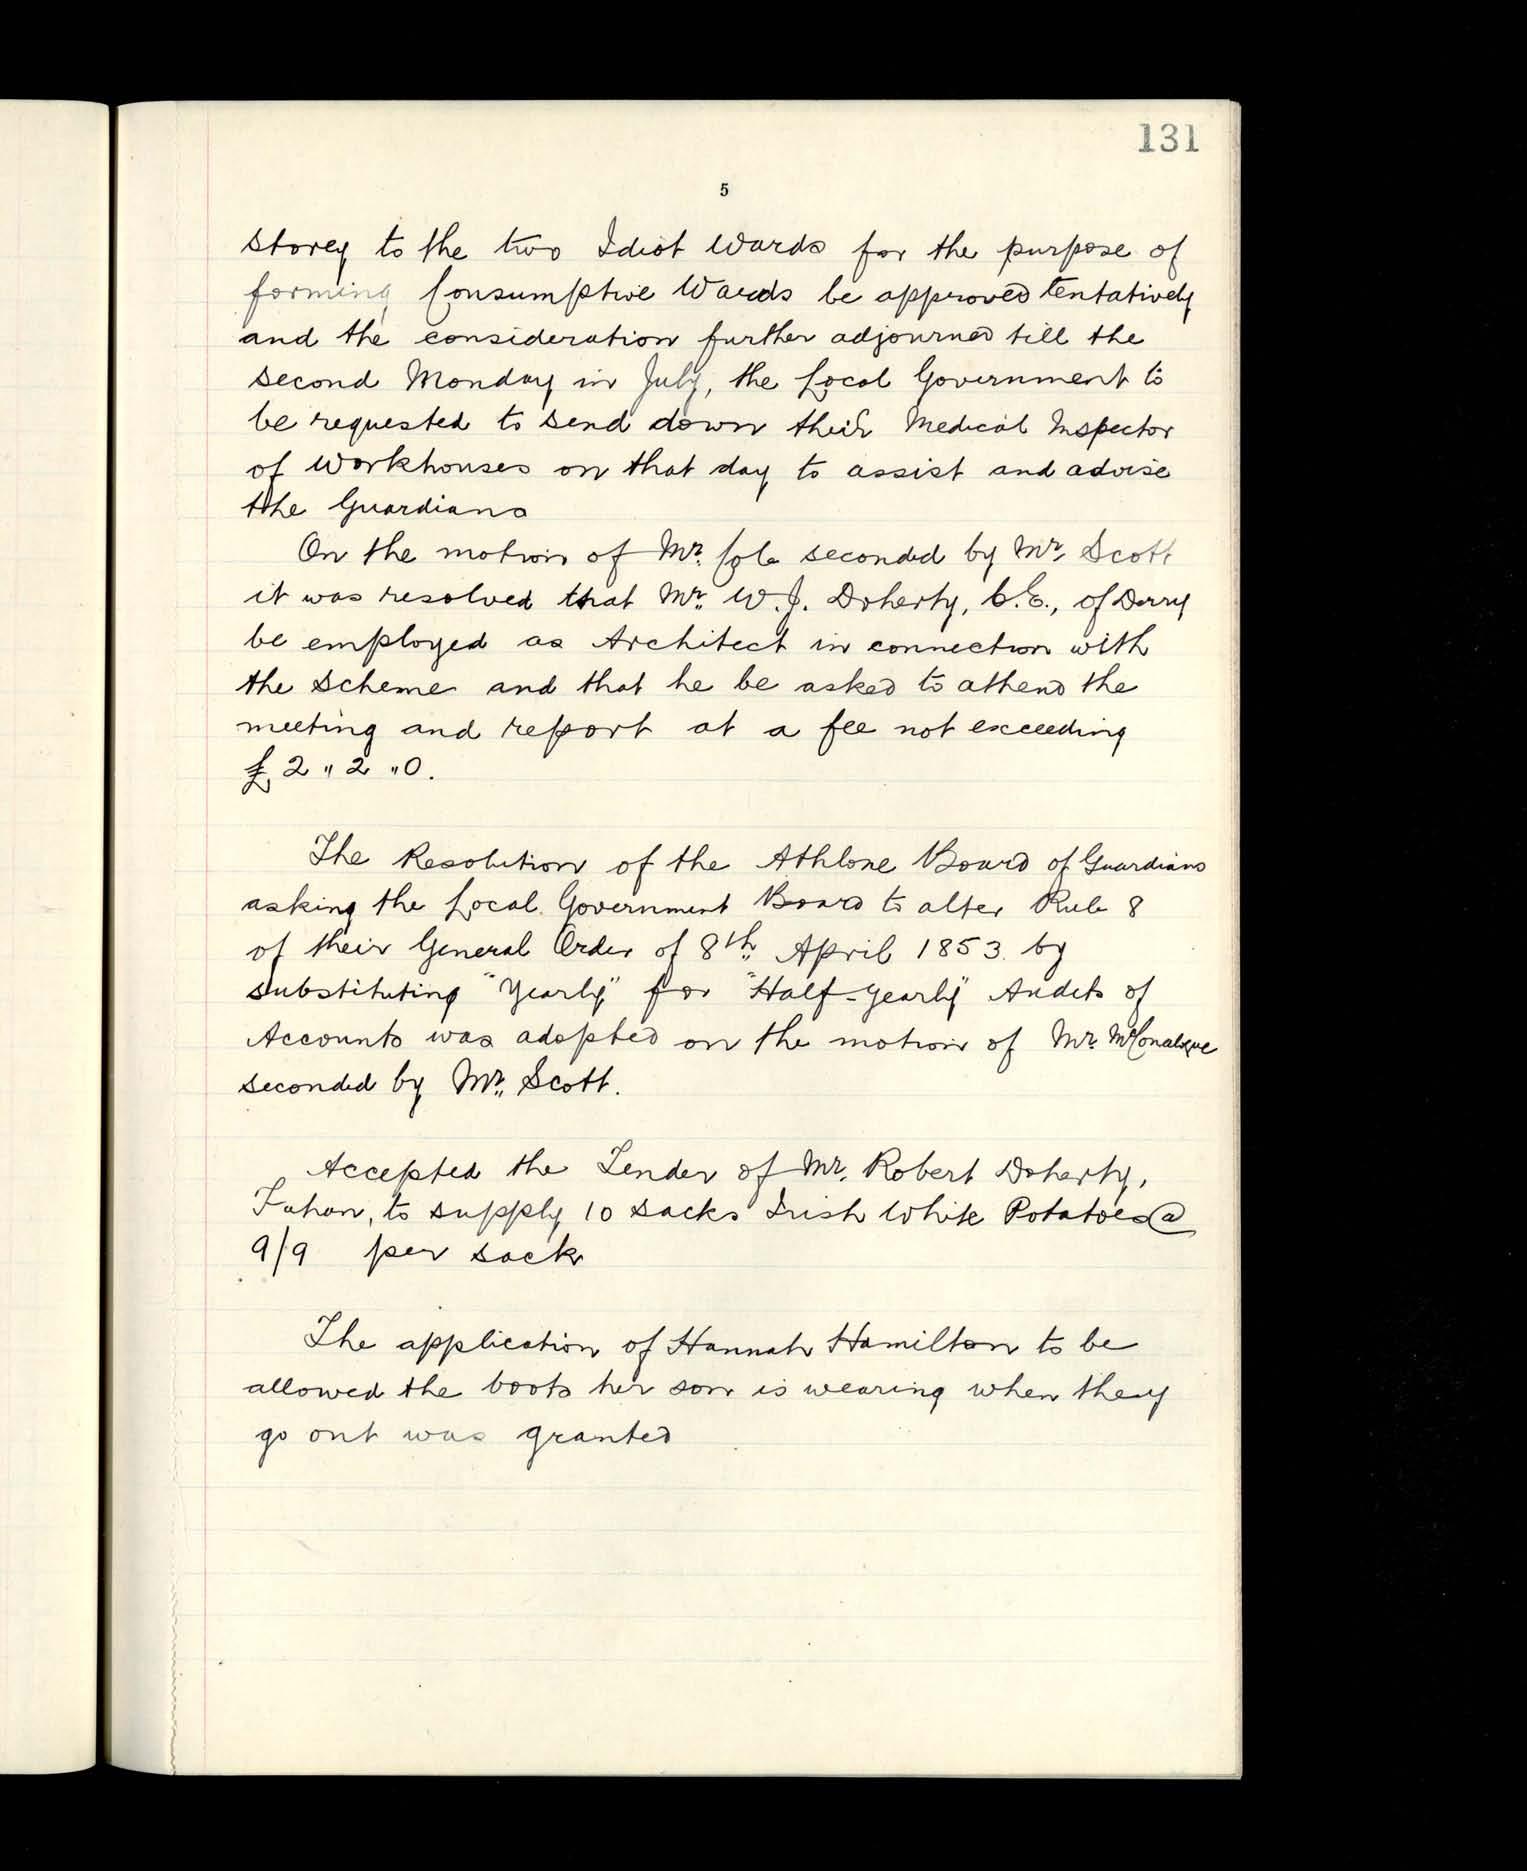 131
5
storey to the two Idiot Wards for the purpose of
forming Consumptive Wards be approved tentatively
and the consideration further adjourned till the
second Monday in July, the Local Government to
be requested to send down their Medical Inspector
of Workhouses on that day to assist and advise
the Guardians
On the motion of Mr. Cole seconded by Mr. Scott
it was resolved that Mr. W. J. Doherty, C.E., of Derry
be employed as Architect in connection with
the Scheme and that he be asked to attend the
meeting and report at a fee not exceeding
£2 " 2 " 0.
The Resolution of the Athlone Board of Guardians
asking the Local Government Board to alter Rule 8
of their General Order of 8th April 1853 by
substituting "Yearly" for "Half-yearly" Audits of
Accounts was adopted on the motion of Mr. McConalogue
seconded by Mr. Scott.
Accepted the Tender of Mr. Robert Doherty,
Fahan, to supply 10 sacks Irish White Potatoes @
9/9 per sack
The application of Hannah Hamilton to be
allowed the boots her son is wearing when they
go out was granted